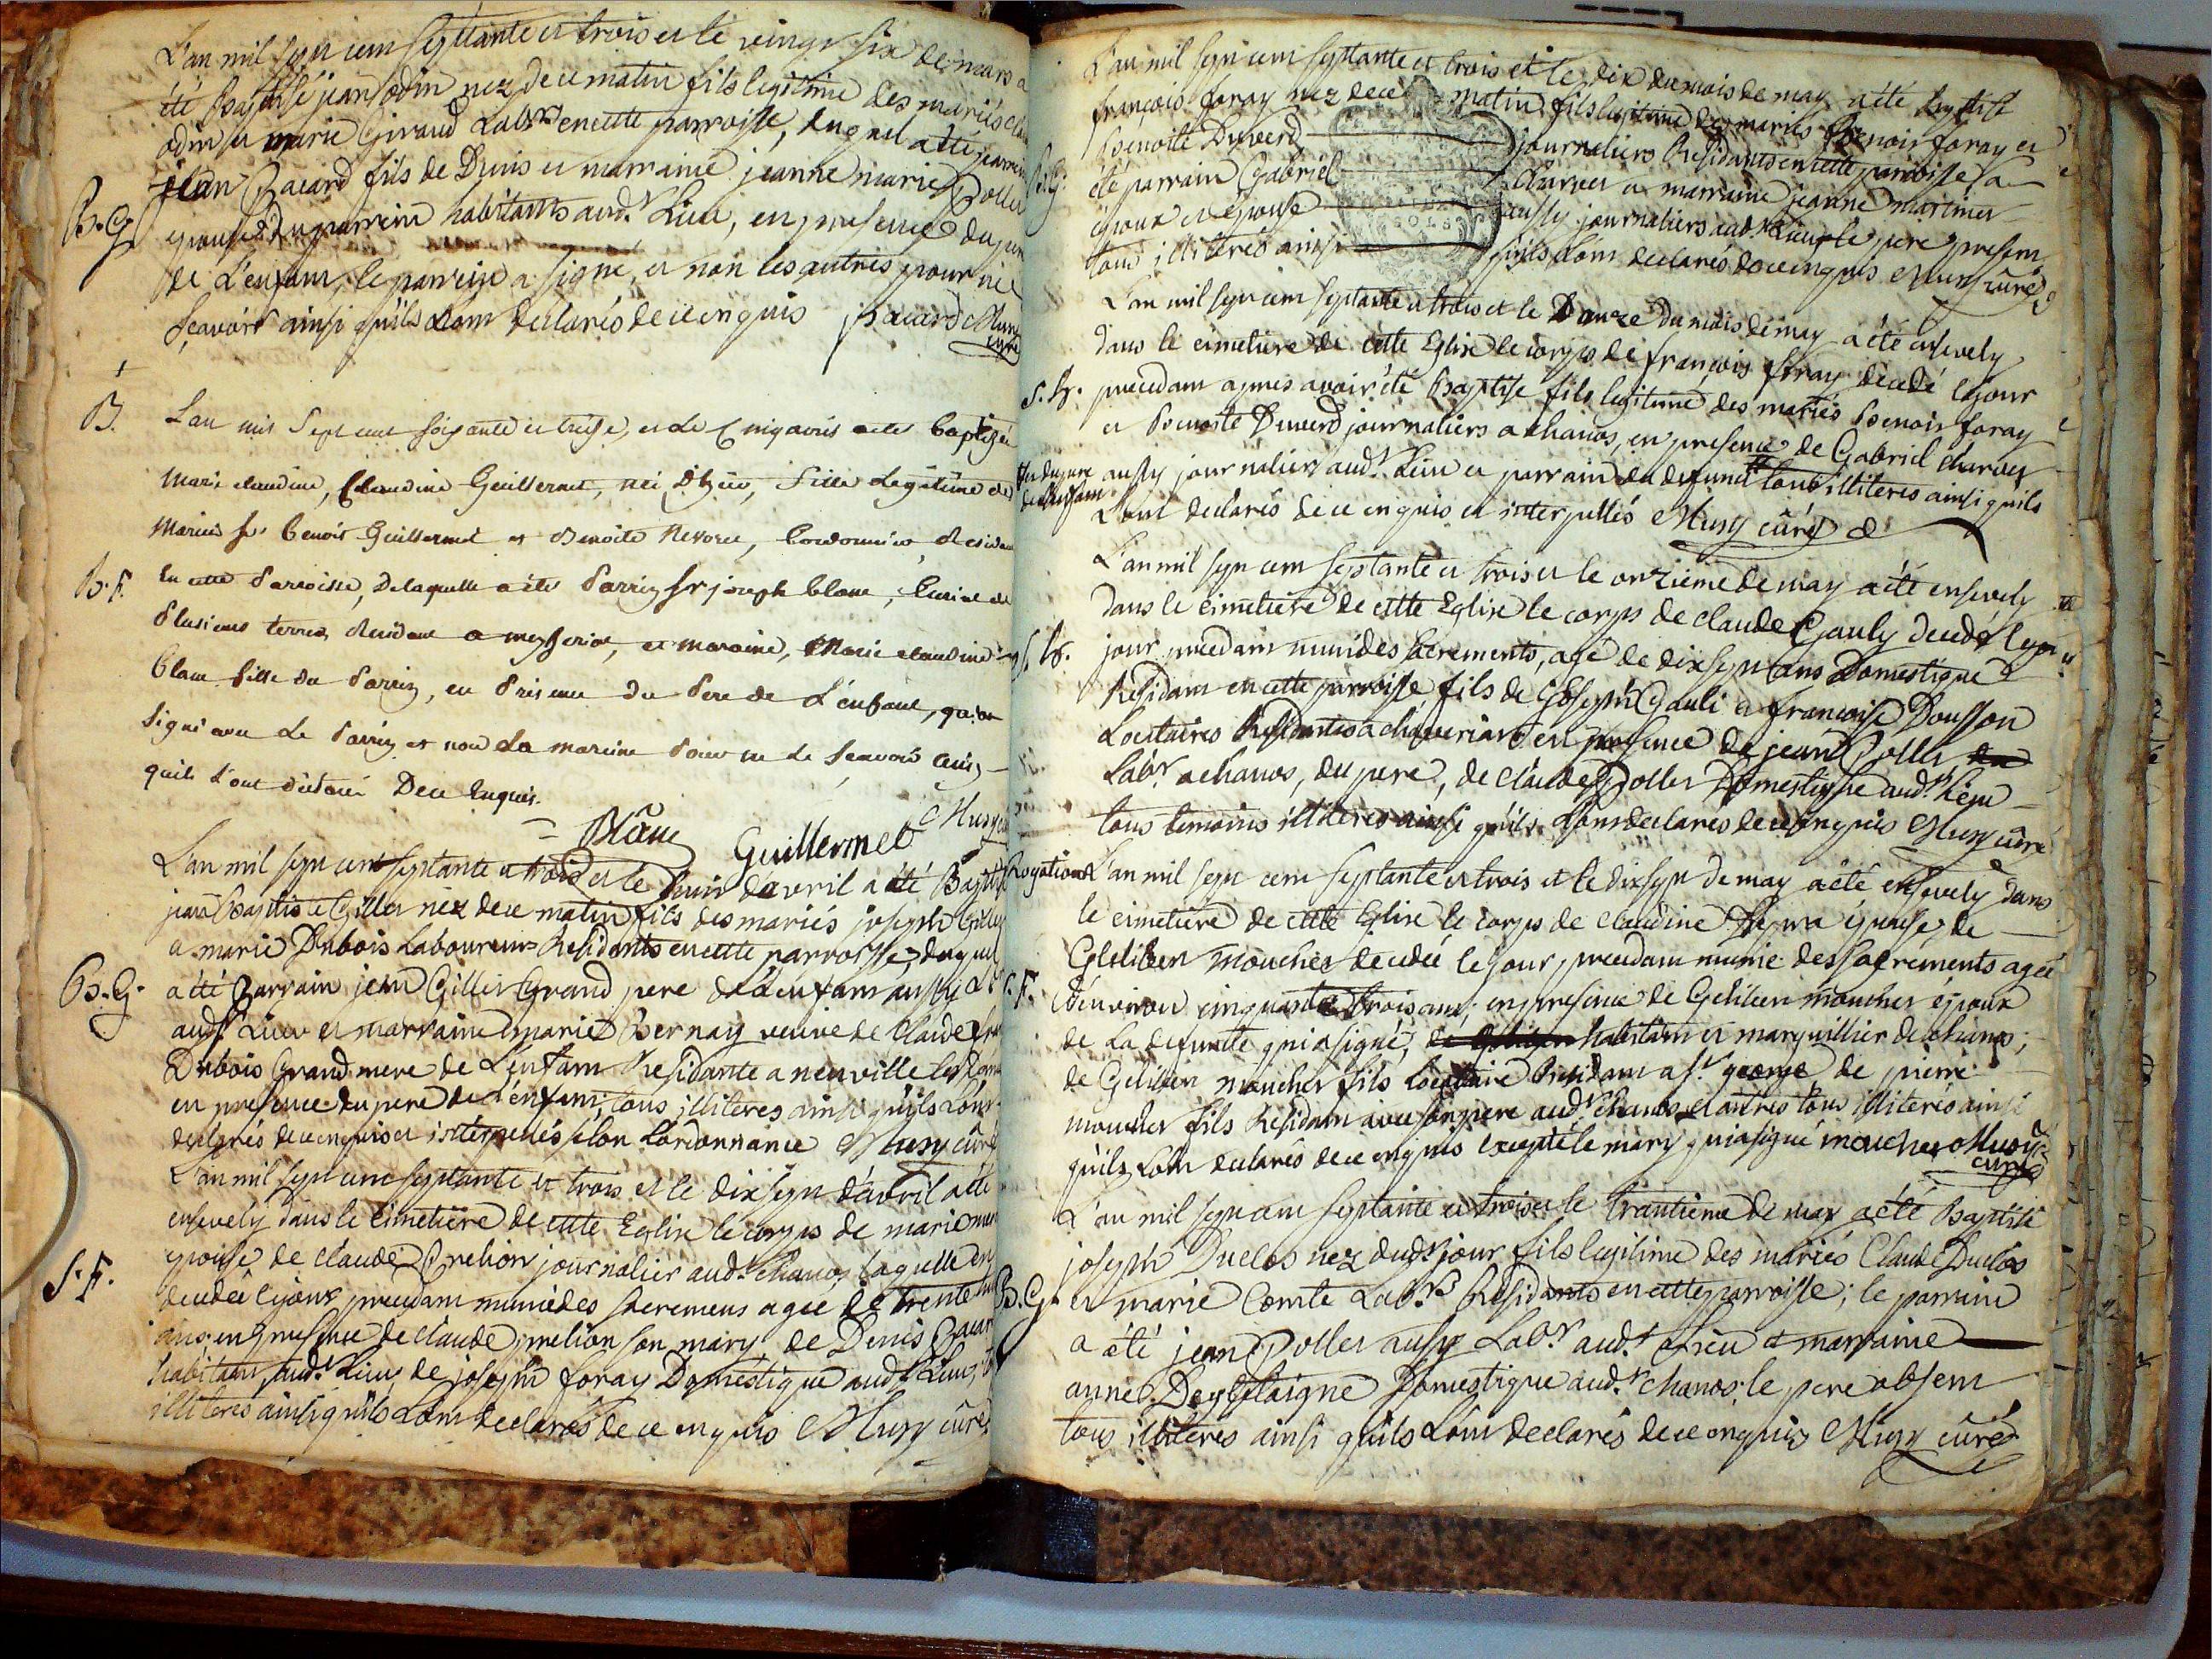 L'an mil sept cent septante et trois et le vingt six de mars a
été Baptisé jean odin nez de ce matin fils legitime des mariés
odin et marie Giraud Lab.rs en cette parroisse, duquel a été parrein
jean Pacard fils de Denis et marraine jeanne marie Poller
B. G. epouse du parrein habitants aud.t Lieu, en presence du pere
de L'enfant, le parrein a signé, et non les autres pour ne
scavoir ainsi quils L'ont declarés de ce enquis Pacard Musy
curé
B. L'an mil sept cent soixante et treise, et Le Cinq avril a été baptizée
Marie claudine, Claudine Guillermet, née D'hier, fille Legitime de
Mariés sr benoit Guillermet et Benoite Nevoret, Cordonnier, Resident
B. F. En cette Parroisse, De laquelle a été Parrin Sr joseph blanc,
Plusieurs terres, Resident a meyseriat, et maraine, Marie claudine
blanc fille du Parrin, en Presence du Pere de L'enfant, qui a
signé avec Le Parrin et non La maraine Pour ne Le Scavoir ainsi
quils L'ont déclaré De ce Enquis.
Blanc Guillermet Musy
L'an mil sept cent septante et trois et le huit d'avril a été Baptisé
jean Baptiste Gillet nez de ce matin fils des mariés joseph Gillet
et marie Dubois Laboureurs Residants en cette parroisse, duquel
B. G. a été Parrain jean Gillet Grand pere de L'enfant aussy
aud.t Lieu et marraine marie Bernay veuve de Claude
Dubois Grand mere de L'enfant Residante a neuville les
en presence du pere de L'enfant, tous illiterés ainsi quils L'ont
declarés de ce enquis et interpellés selon L'ordonnance Musy curé
L'an mil sept cent septante et trois et le dix sept d'avril a été
ensevely dans le cimetiere de cette Eglise le corps de marie
epouse de claude prelion journalier aud.t chanos laquelle
S. F. decedée le jour precedant munie des sacremens agée de trente
ans en presence de claude prelion son mary, de Denis Pacard
habitant aud.t Lieu, de joseph foray Domestique aud.t Lieu,
illiterés ainsi quils L'ont declarés de ce enquis Musy curé
L'an mil sept cent septante et trois et le dix du mois de may a été baptisé
françois foray nez de ce matin fils legitime des mariés Benoit foray et
Benoite Duverd journaliers Residants en cette parroisse a
B. G. été parrain Gabriel Charvet et marraine jeanne martinet
époux et épouse aussy journaliers aud.t Lieu le pere present
tous illiterés ainsi quils L'ont declarés de ce enquis Musy curé
L'an mil sept cent septante et trois et le Douze du mois de may a été ensevely
dans le cimetiere de cette Eglise le corps de françois foray decedé le jour
S. G. precedant apres avoir été Baptisé fils legitime des mariés Benoit foray
et Benoite Duverd journaliers a chanos, en presence de Gabriel charvet
et du pere de L'enfant aussy journaliers aud.t Lieu et parrain du defunct tous illiterés ainsi quils
L'ont declarés de ce enquis et interpellés Musy curé
L'an mil sept cent septante et trois et le onzieme de may a été ensevely
dans le cimetiere de cette Eglise le corps de claude Gauly decedé le
S. G. jour precedant muni des sacrements, agé de dix sept ans Domestique
Residant en cette parroisse fils de joseph Gauli et françoise Dousson
Locataires Residants a chaveriat en presence de jean Poller
Lab.r a chanos, du pere, de claude Poller Domestique aud.t Lieu
tous temoins illiterés ainsi quils L'ont declarés de ce enquis Musy curé
Rogations L'an mil sept cent septante et trois et le dix sept de may a été ensevely dans
le cimetiere de cette Eglise le corps de claudine épouse de
Gelibert mouchet decedée le jour precedant munie des sacrements agée
S. F. d'environ cinquante trois ans, en presence de Gelibert mouchet époux
de La defuncte qui a signé, habitant et marguillier de chanos;
de Gelibert mouchet fils Locataire Residant a St. george de pierre
mouchet fils Residant avec son pere aud.t chanos et autres tous illiterés ainsi
quils L'ont declarés de ce enquis excepté le mary qui a signé mouchet Musy
curé
L'an mil sept cent septante et trois et le trantieme de may a été Baptisé
joseph Duclos nez dud.t jour fils legitime des mariés Claude Duclos
B. G. et marie Comte Lab.rs Residants en cette parroisse; le parrain
a été jean Poller aussy Lab.r aud.t Lieu et marraine
anne Domestique aud.t chanos. le pere absent
tous illiterés ainsi quils L'ont declarés de ce enquis Musy curé